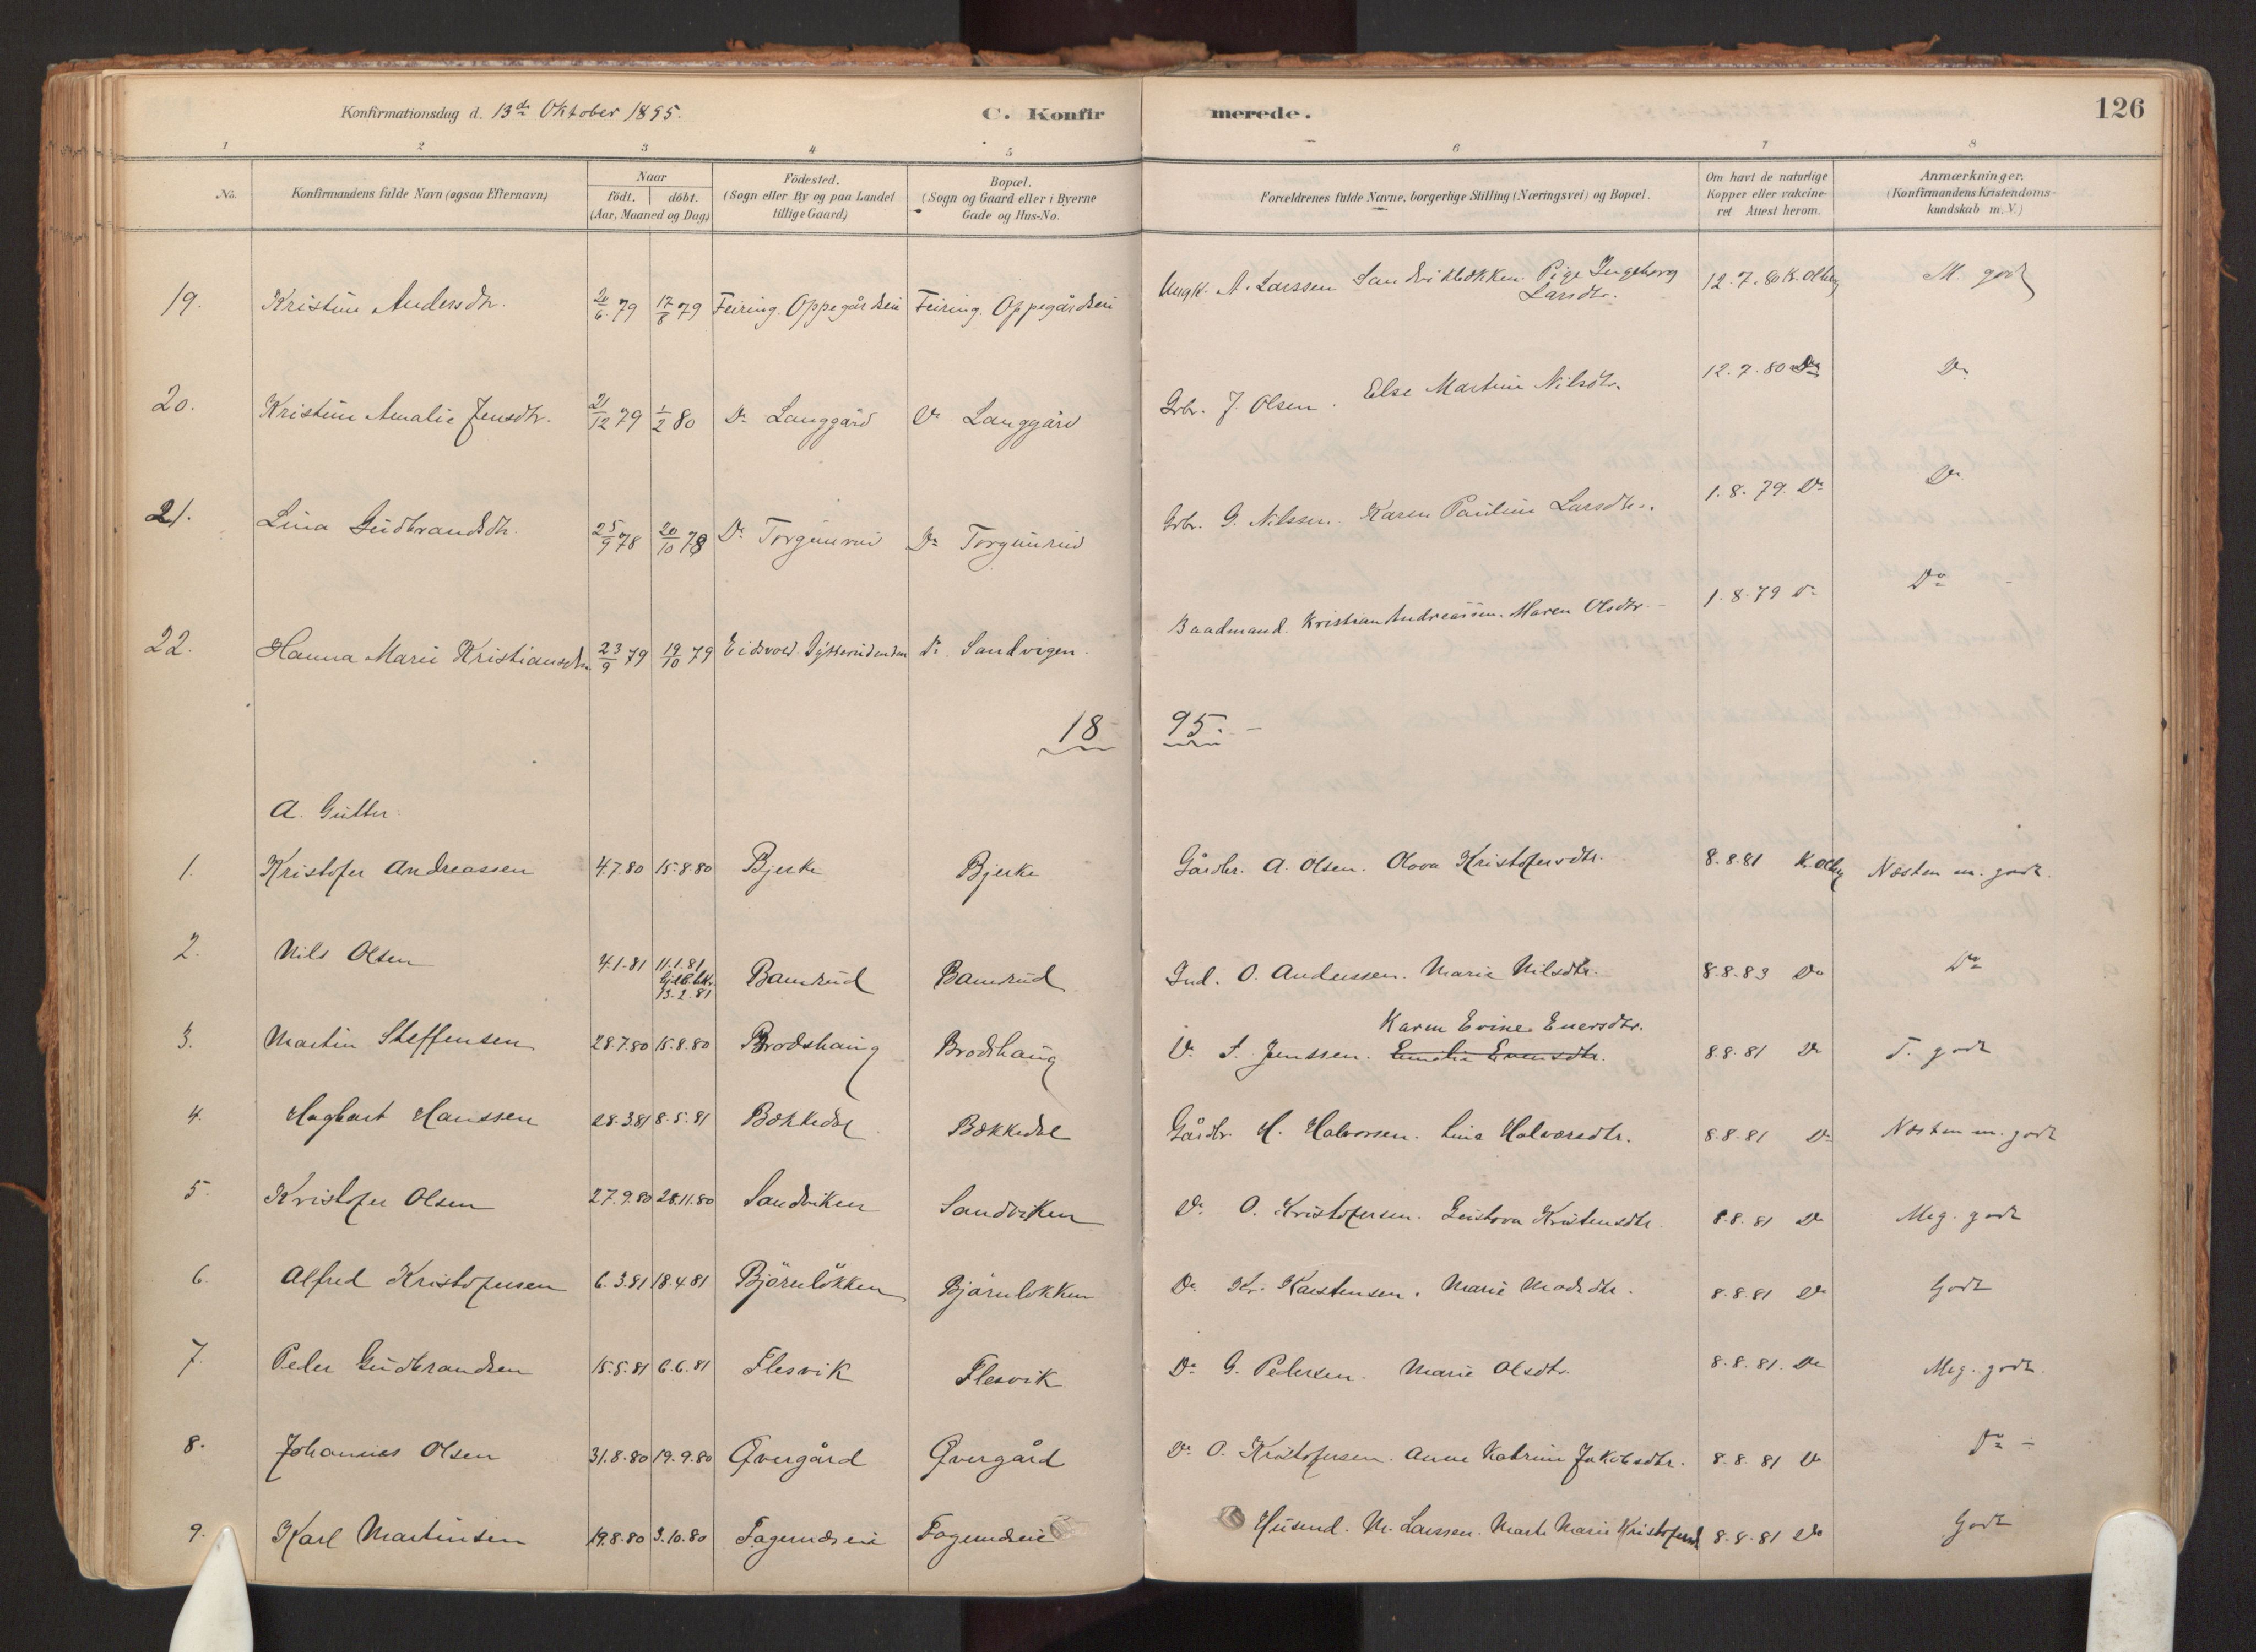 Konfirmationsdag d. 13de Oktober 1895. C. Konfirmerede. 126
1 2 3 4 5 6 7 8
No. Konfirmandens fulde Navn (ogsaa Efternavn) Naar födt. döbt. (Aar, Maaned og Dag) Födested. (Sogn eller By og paa Landet tillige Gaard) Bopæl. (Sogn og Gaard eller i Byerne Gade og Hus-No. Forældrenes fulde Navne, borgerlige Stilling (Næringsvei) og Bopæl. Om havt de naturlige Kopper eller vakcineret Attest herom. Anmærkninger. (Konfirmandens Kristendomskundskab m. V.)
19. Kristine Andersdtr. 20/6 79 17/8 79 Feiring. Oppegårdseie Feiring. Oppegårdseie Ungk. A. Larssen Sandvikbækken. Pige Ingeborg Larsdtr. 12.7.80 K. Olberg M. godt
20. Kristine Amalie Jensdtr. 21/12 79 1/2 80 Do Langgård Do Langgård Grbr. J. Olsen. Else Martine Nilsdtr. 12.7.80 Do Do
21. Lina Gudbrandsdtr. 25/9 78 20/10 78 Do Torgunrud Do Torgunrud Grbr. G. Nilssen. Karen Pauline Larsdtr. 1.8.79. Do Do
22. Hanna Marie Kristiansdtr. 23/9 79 19/10 79 Eidsvold. Do. Sandvigen. Baadmand. Kristian Andreassen. Maren Olsdtr. 1.8.79 Do Do
18 95.
A. Gutter.
1. Kristofer Andreassen 4.7.80 15.8.80 Bjerke Bjerke Gårdbr. A. Olsen. Olova Kristofersdtr. 8.8.81 K. Olberg Næsten m. godt.
2. Nils Olsen 4.1.81 11.1.81 13.2.81 Bamrud Bamrud Ind. O. Anderssen. Marie Nilsdtr. 8.8.83 Do Do
3. Martin Steffensen 28.7.80 15.8.80 Brodshaug Brodshaug Do S. Jenssen. Karen Evine Enersdtr. 8.8.81 Do T. godt
4. Hagbart Hanssen 28.3.81 8.5.81 Bækkedal Bækkedal Gårdbr. H. Halvorsen. Lina Halvorsdtr. 8.8.81 Do Næsten m. godt
5. Kristofer Olsen 27.9.80 28.11.80 Sandviken Sandviken Do O. Kristofersen. Gustava Kristensdtr. 8.8.81 Do Meg. godt
6. Alfred Kristofersen 6.3.81 18.4.81 Björnlökken Björnlökken Do Kr. Karstensen. Marie Madsdtr. 8.8.81 Do Godt
7. Peder Gudbrandsen 15.5.81 6.6.81 Flesvik Flesvik Do G. Pedersen. Marie Olsdtr. 8.8.81. Do Meg. godt.
8. Johannes Olsen 31.8.80 19.9.80 Øvergård Øvergård Do O. Kristofersen. Anne Katrine Jakobsdtr. 8.8.81 Do Do
9. Karl Martinsen 19.8.80 3.10.80 Fagerndseie Fagerndseie Husmd. M. Larssen. Marte Marie Kristofersd. 8.8.81 Do Godt